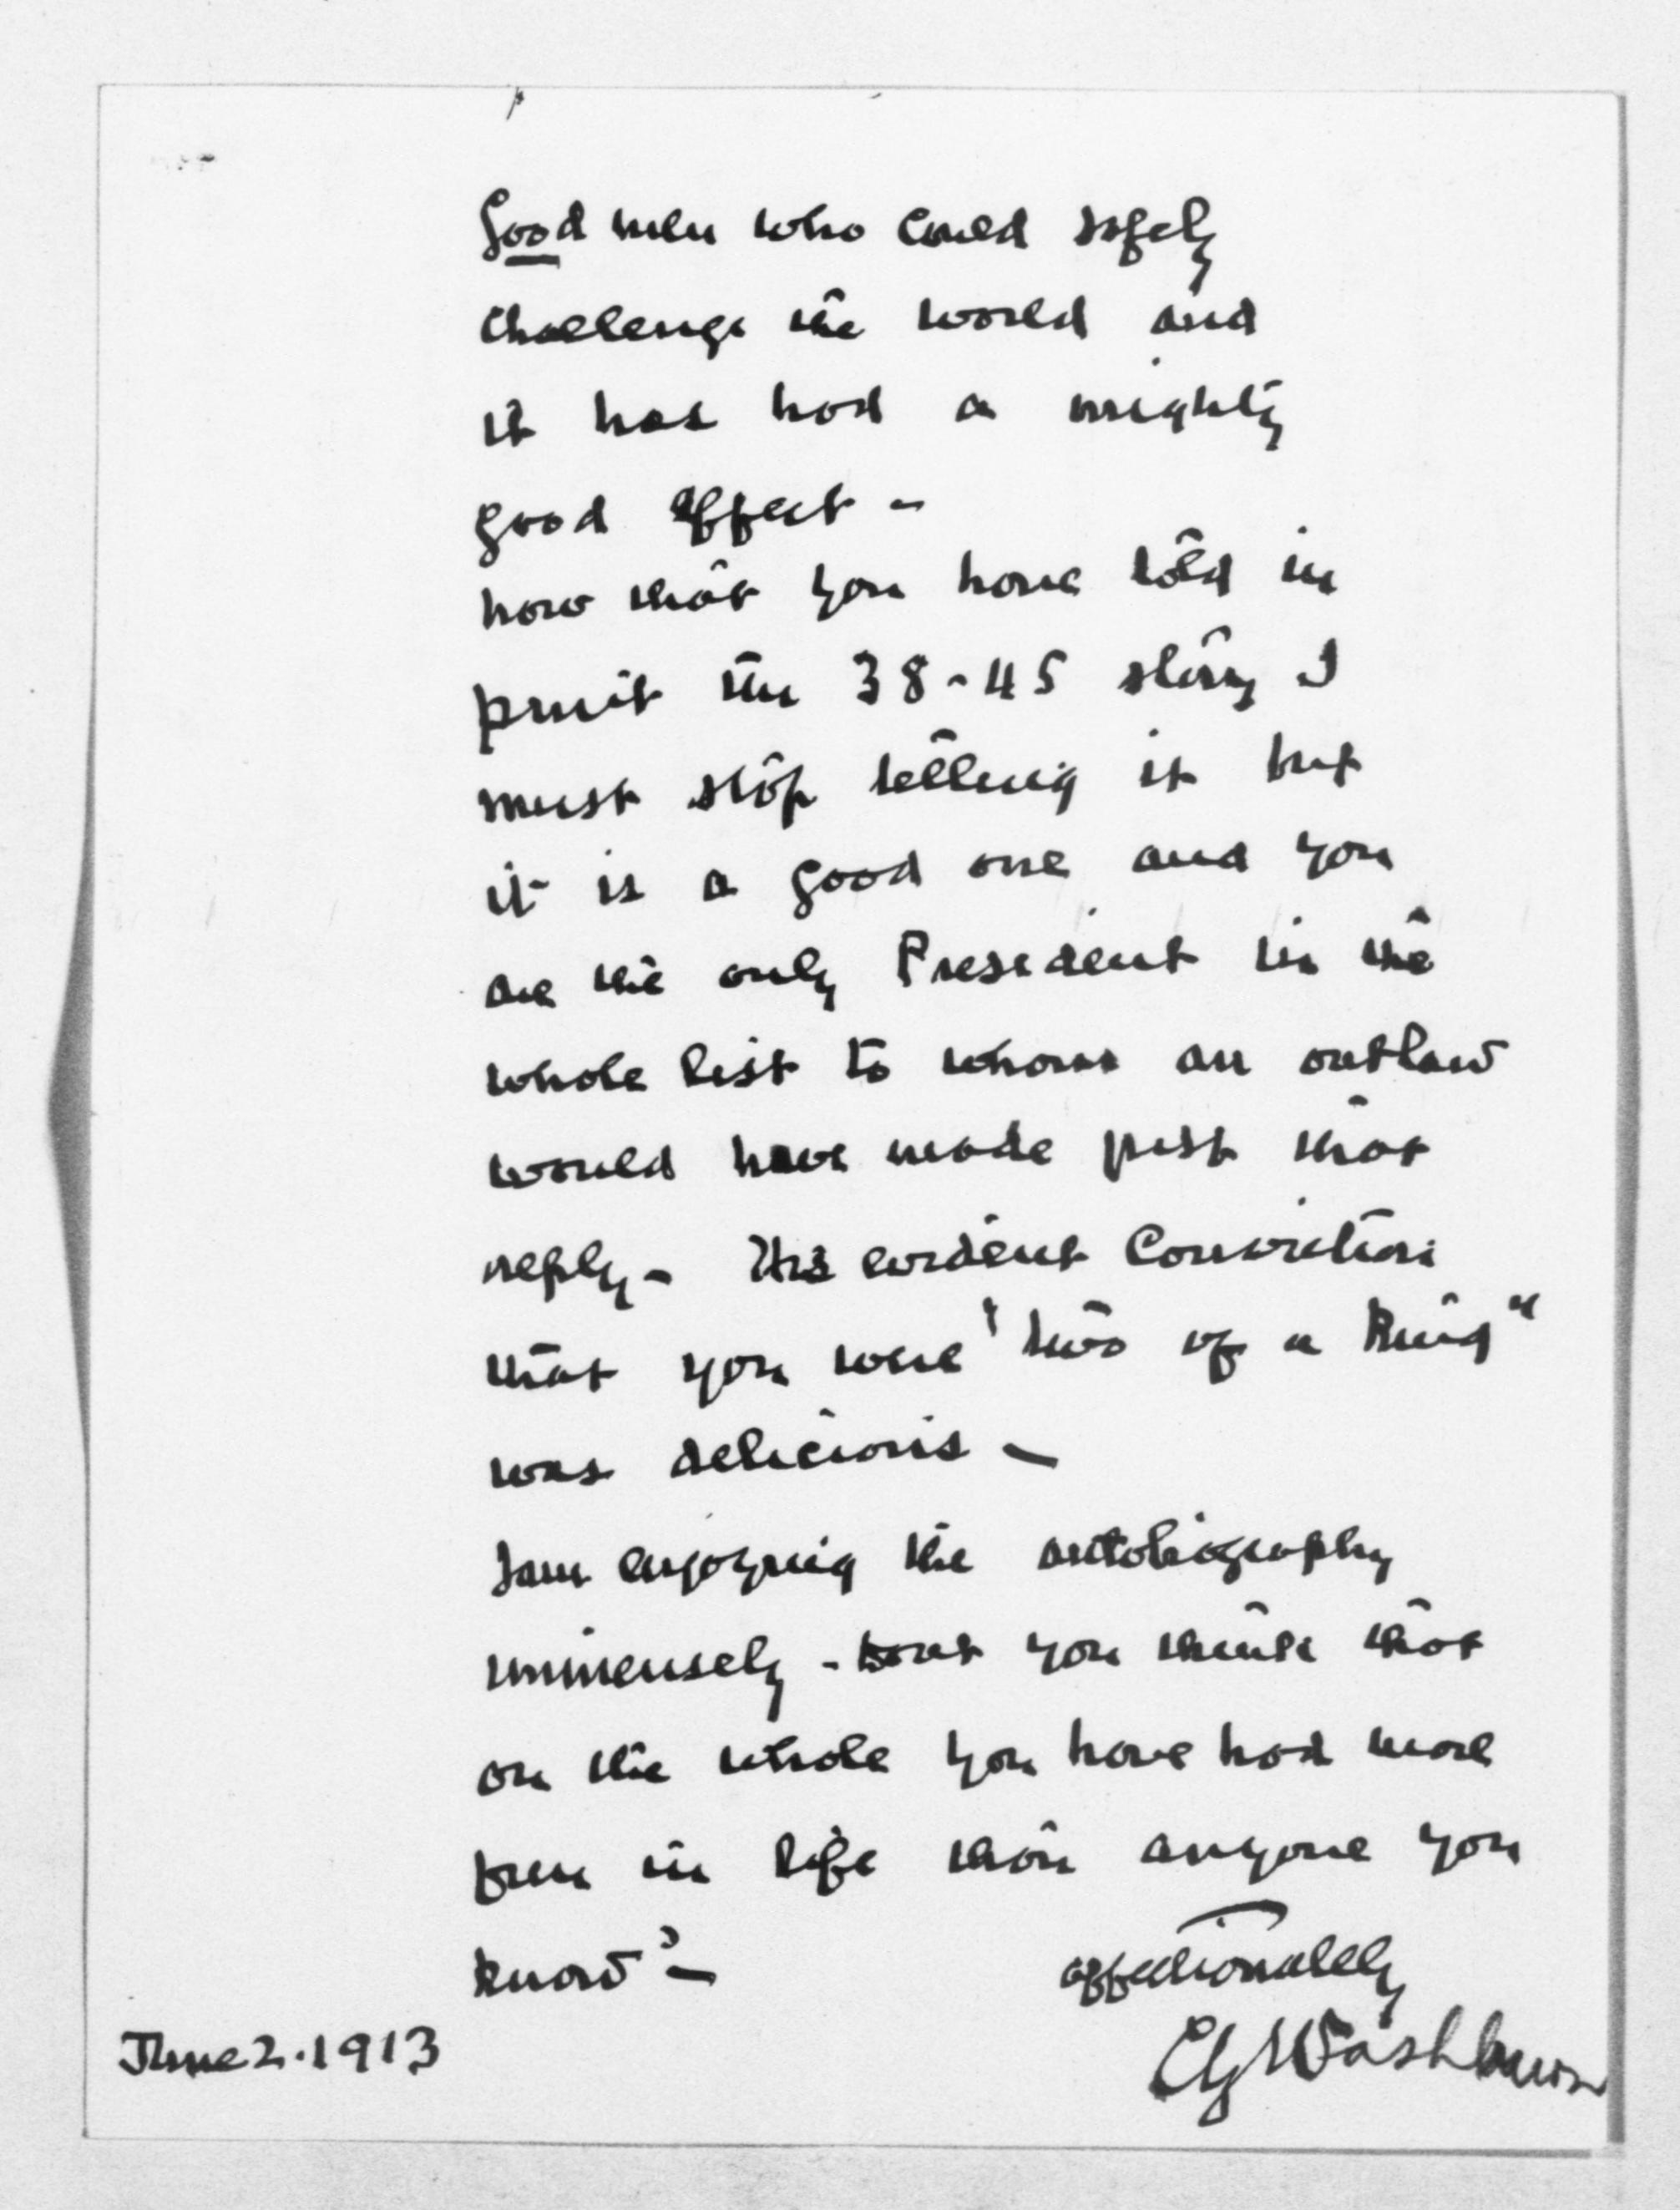 good men who could safely
challenge the world and
it has had a mighty
good effect -
now that you have told in
print the 38-45 story I
must stop telling it but
it is a good one and you
are the only President in the
whole list to whom an outlaw
would have made just that
reply - His evident conviction
that you were "two of a kind"
was delicious -
I am enjoying the autobiography
immensely - don't you think that
on the whole you have had more
fun in life than anyone you
know? -
affectionately
CG Washburn
June 2. 1913